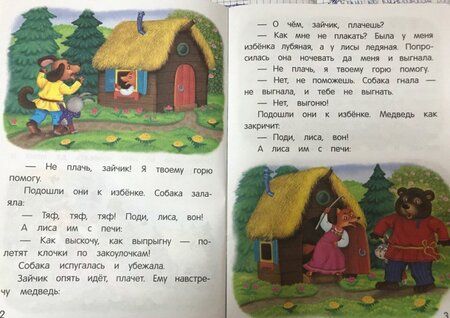 — Не плачь, зайчик! Я твоему горю
помогу.
Подошли они к избёнке. Собака зала-
яла:
— Тяф, тяф, тяф! Поди, лиса, вон!
А лиса им с печи:
— Как выскочу, как выпрыгну — по-
летят клочки по закоулочкам!
Собака испугалась и убежала.
Зайчик опять идёт, плачет. Ему навстре-
чу медведь:
2
— О чём, зайчик, плачешь?
— Как мне не плакать? Была у меня
избёнка лубяная, а у лисы ледяная. Попро-
силась она ночевать да меня и выгнала.
— Не плачь, я твоему горю помогу.
— Нет, не поможешь. Собака гнала —
не выгнала, и тебе не выгнать.
— Нет, выгоню!
Подошли они к избёнке. Медведь как
закричит:
— Поди, лиса, вон!
А лиса им с печи:
3